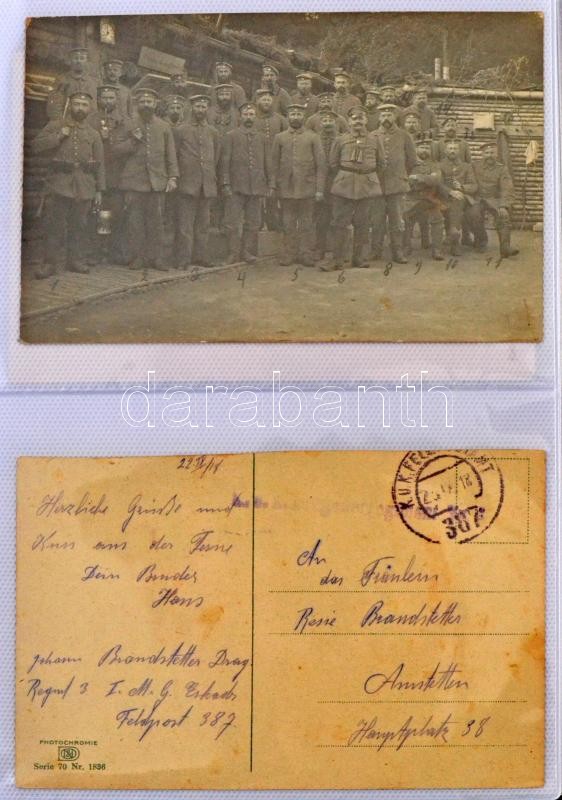 1 2 3 4 5 6 8 9 10 11
darabanth
22 IV/18
Herzliche Grüße und
Kuss aus der Ferne
Dein Bruder
Hans
Johann Brandstetter Drag.
Regmt 3 I. M. G. Eskadr
Feldpost 387
PHOTOCHROMIE
Serie 70 Nr. 1836
K.U.K. FELDPOSTAMT
387
An
das Fräulein
Resie Brandstetter
Amstetten
Hauptplatz 38